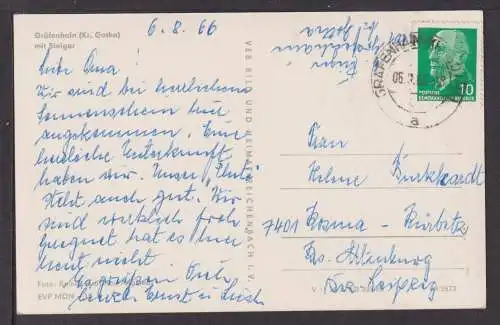 6.8.66
Gräfenhain (Kr. Gotha)
mit Steiger
Liebe Oma!
Wir sind bei herrlichem
Sonnenschein hier
angekommen. Eine
herrliche Unterkunft
haben wir. Unser
steht auch gut. Wir
sind wirklich froh
Geregnet hat es hier
heut nicht
Es grüßen Euch
Ernst u.
Foto:
EVP MDN
VEB BILD UND HEIMAT REICHENBACH I. V.
GRÄFENHAIN
a
10
DEUTSCHE DEMOKRATISCHE REPUBLIK
Frau
Helene Burkhardt
7401 Kosma - Kürbitz
Krs. Altenburg
Bez. Leipzig